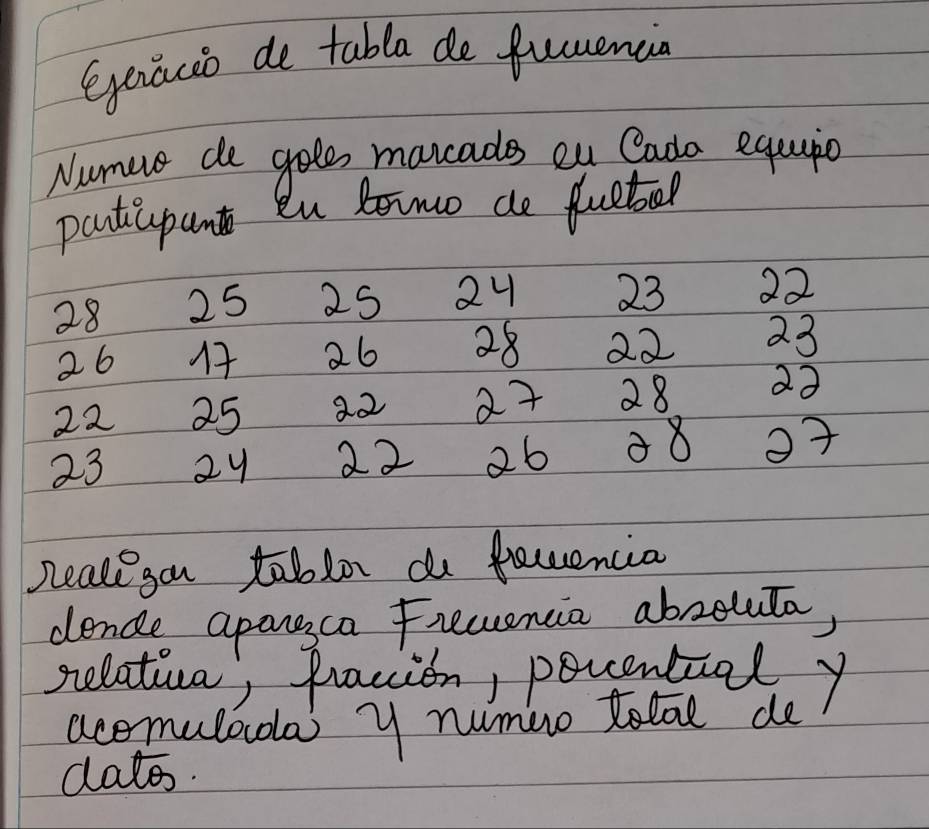 Ejericicio de tabla de frecuencia
Numero de goles marcados en Cada equipo
participante en torneo de fultbol
28 25 25 24 23 22
26 17 26 28 22 23
22 25 22 27 28 22
23 24 22 26 28 27
realizar tabla de frecuencia
donde aparezca Frecuencia absoluta,
relativa, fracción, porcentual y
acomulada y número total de
datos.